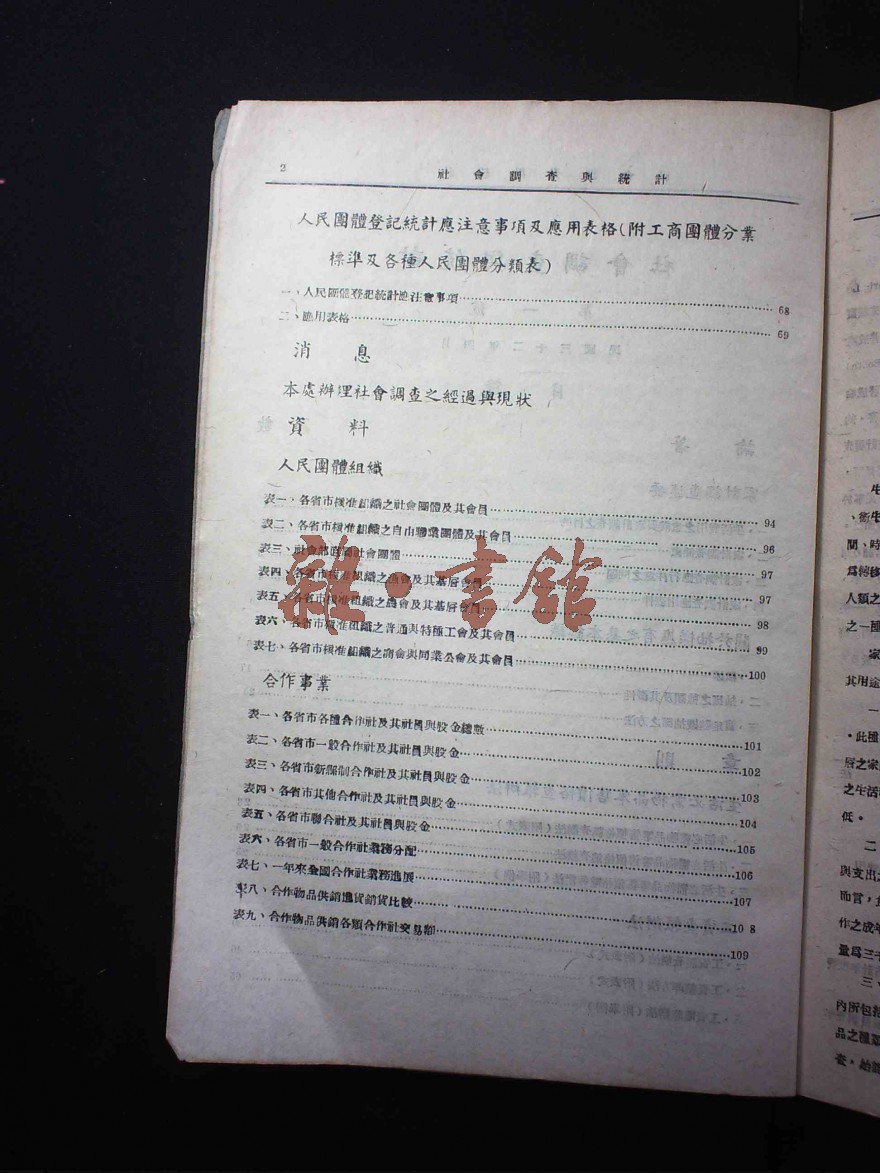 2
社會調查與統計
人民團體登記統計應注意事項及應用表格(附工商團體分業
標準及各種人民團體分類表)
一、人民團體登記統計應注意事項 68
二、應用表格 69
消 息
本處辦理社會調查之經過與現狀
資 料
人民團體組織
表一、各省市核准組織之社會團體及其會員 94
表二、各省市核准組織之自由職業團體及其會員 96
表三、社會部直屬社會團體 97
表四、各省市核准組織之漁會及其基層會員 97
表五、各省市核准組織之農會及其基層會員 98
表六、各省市核准組織之普通與特種工會及其會員 99
表七、各省市核准組織之商會與同業公會及其會員 100
合作事業
表一、各省市各種合作社及其社員與股金總數 101
表二、各省市一般合作社及其社員與股金 102
表三、各省市新縣制合作社及其社員與股金 103
表四、各省市其他合作社及其社員與股金 104
表五、各省市聯合社及其社員與股金 105
表六、各省市一般合作社業務分配 106
表七、一年來全國合作社業務進展 107
表八、合作物品供銷進貨銷貨比較 10 8
表九、合作物品供銷各類合作社交易額 109
雜·書館
間、時
人類之
之一種
家
其用途
一
·此種
層之家
之生活
低。
二
與支出之
而言，
作之成年
量爲三
三、
內所包括
品之種類